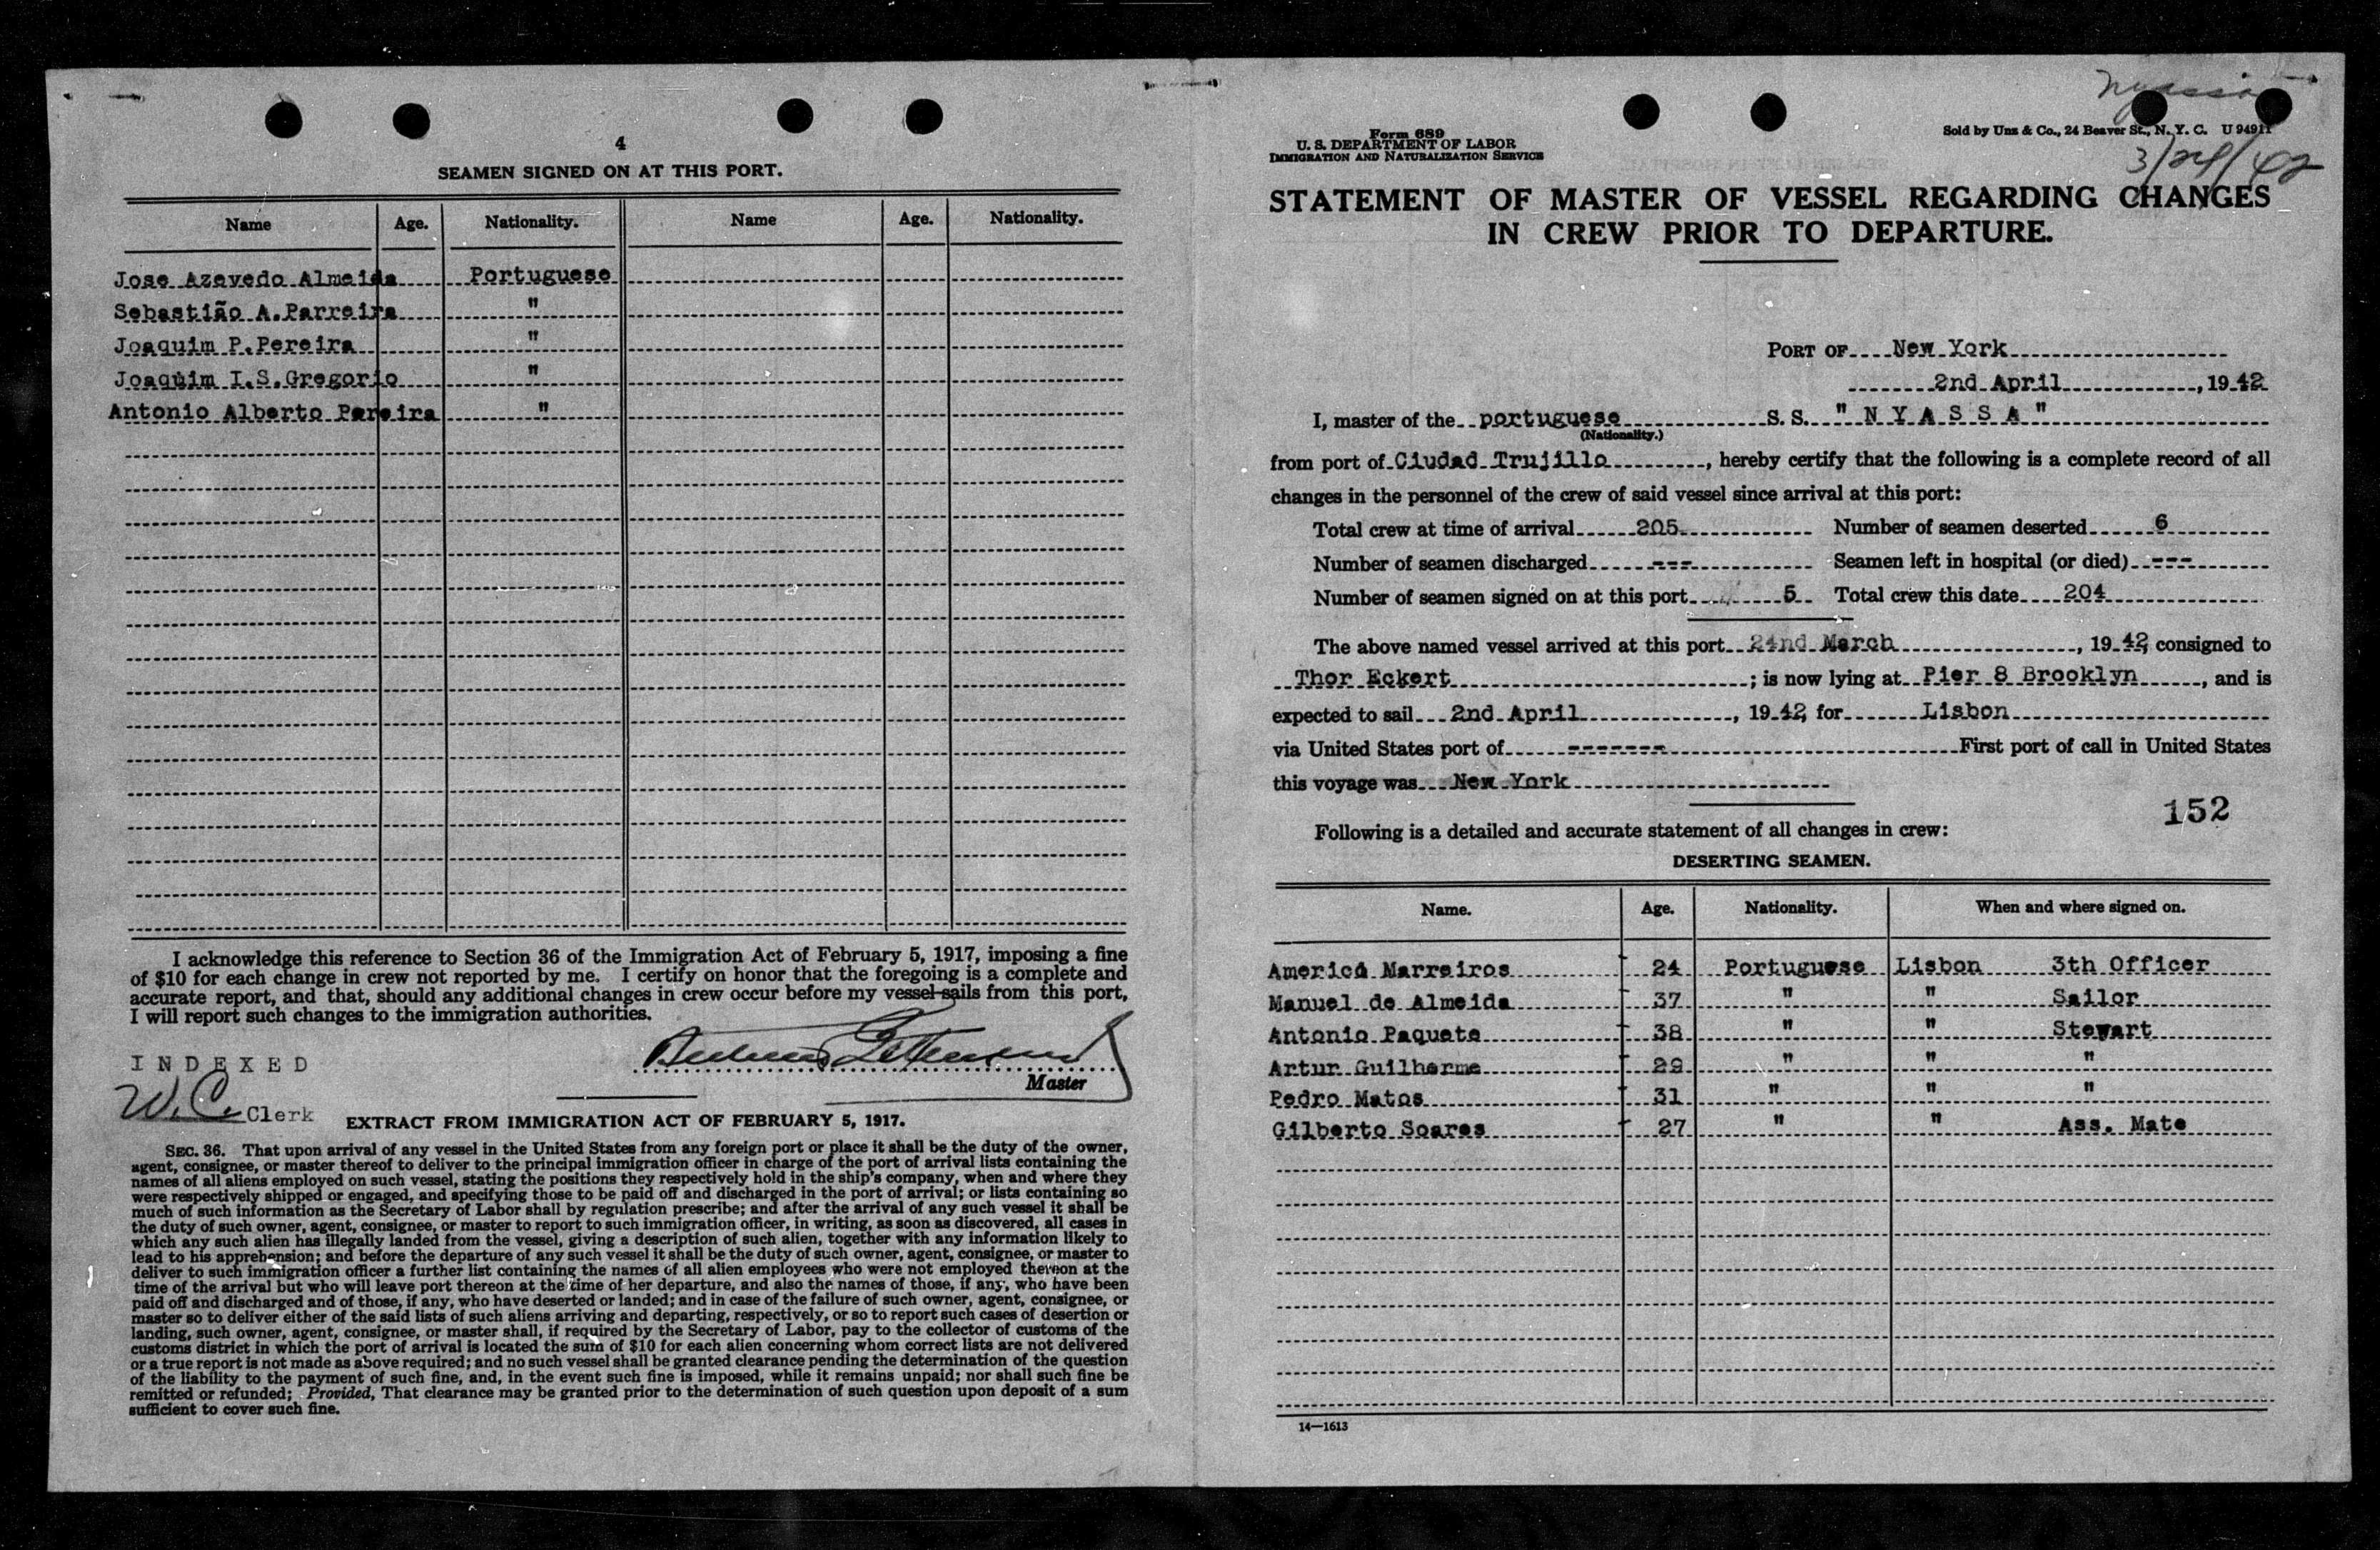 4
SEAMEN SIGNED ON AT THIS PORT.
Name Age. Nationality. Name Age. Nationality.
Jose Azevedo Almeida Portuguese
Sebastião A.Parreira "
Joaquim P.Pereira "
Joaquim I.S.Gregorio "
Antonio Alberto Pereira "
I acknowledge this reference to Section 36 of the Immigration Act of February 5, 1917, imposing a fine
of $10 for each change in crew not reported by me. I certify on honor that the foregoing is a complete and
accurate report, and that, should any additional changes in crew occur before my vessel sails from this port,
I will report such changes to the immigration authorities.
INDEXED
Master
W.C. Clerk
EXTRACT FROM IMMIGRATION ACT OF FEBRUARY 5, 1917.
SEC. 36. That upon arrival of any vessel in the United States from any foreign port or place it shall be the duty of the owner,
agent, consignee, or master thereof to deliver to the principal immigration officer in charge of the port of arrival lists containing the
names of all aliens employed on such vessel, stating the positions they respectively hold in the ship's company, when and where they
were respectively shipped or engaged, and specifying those to be paid off and discharged in the port of arrival; or lists containing so
much of such information as the Secretary of Labor shall by regulation prescribe; and after the arrival of any such vessel it shall be
the duty of such owner, agent, consignee, or master to report to such immigration officer, in writing, as soon as discovered, all cases in
which any such alien has illegally landed from the vessel, giving a description of such alien, together with any information likely to
lead to his apprehension; and before the departure of any such vessel it shall be the duty of such owner, agent, consignee, or master to
deliver to such immigration officer a further list containing the names of all alien employees who were not employed thereon at the
time of the arrival but who will leave port thereon at the time of her departure, and also the names of those, if any, who have been
paid off and discharged and of those, if any, who have deserted or landed; and in case of the failure of such owner, agent, consignee, or
master so to deliver either of the said lists of such aliens arriving and departing, respectively, or so to report such cases of desertion or
landing, such owner, agent, consignee, or master shall, if required by the Secretary of Labor, pay to the collector of customs of the
customs district in which the port of arrival is located the sum of $10 for each alien concerning whom correct lists are not delivered
or a true report is not made as above required; and no such vessel shall be granted clearance pending the determination of the question
of the liability to the payment of such fine, and, in the event such fine is imposed, while it remains unpaid; nor shall such fine be
remitted or refunded; Provided, That clearance may be granted prior to the determination of such question upon deposit of a sum
sufficient to cover such fine.
Nyassa
Form 689
U. S. DEPARTMENT OF LABOR
IMMIGRATION AND NATURALIZATION SERVICE
Sold by Unz & Co., 24 Beaver St., N. Y. C. U 94911
3/24/42
STATEMENT OF MASTER OF VESSEL REGARDING CHANGES
IN CREW PRIOR TO DEPARTURE.
PORT OF New York
2nd April, 1942
I, master of the portuguese S. S. " N Y A S S A "
(Nationality.)
from port of Ciudad Trujillo, hereby certify that the following is a complete record of all
changes in the personnel of the crew of said vessel since arrival at this port:
Total crew at time of arrival 205 Number of seamen deserted 6
Number of seamen discharged --- Seamen left in hospital (or died) ---
Number of seamen signed on at this port 5 Total crew this date 204
The above named vessel arrived at this port 24nd March, 1942 consigned to
Thor Eckert; is now lying at Pier 8 Brooklyn, and is
expected to sail 2nd April, 1942 for Lisbon
via United States port of ------- First port of call in United States
this voyage was New York
152
Following is a detailed and accurate statement of all changes in crew:
DESERTING SEAMEN.
Name. Age. Nationality. When and where signed on.
Americo Marreiros 24 Portuguese Lisbon 3th Officer
Manuel de Almeida 37 " " Sailor
Antonio Paquete 38 " " Stewart
Artur Guilherme 29 " " "
Pedro Matos 31 " " "
Gilberto Soares 27 " " Ass. Mate
14—1613